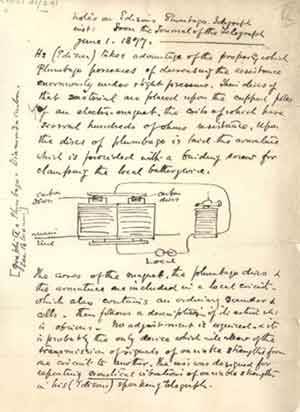 Notes on Edison's Plumbago Telegraph
from the Journal of the Telegraph
June 1. 1877.
He (Edison) takes advantage of the property which
Plumbago possesses of decreasing its resistance
enormously under slight pressure. Thin discs of
that material are placed upon the support poles
of an electro-magnet, the coils of which have
several hundreds of ohms resistance. Upon
the discs of plumbago is laid the armature
which is provided with a binding screw for
clamping the local battery wire.
carbon
discs
carbon
discs
main
line
Local
The cores of the magnet, the plumbago discs &
the armature are included in a local circuit
which also contains an ordinary sounder &
cells. Then follows a description of its action which
is obvious. No adjustment is required & it
is probably the only device which will allow of the
transmission of signals of variable strengths from
one circuit to another. It was designed for
repeating acoustical vibrations of variable strengths
in his (Edison's) speaking telegraph.
Graphite = Plumbago